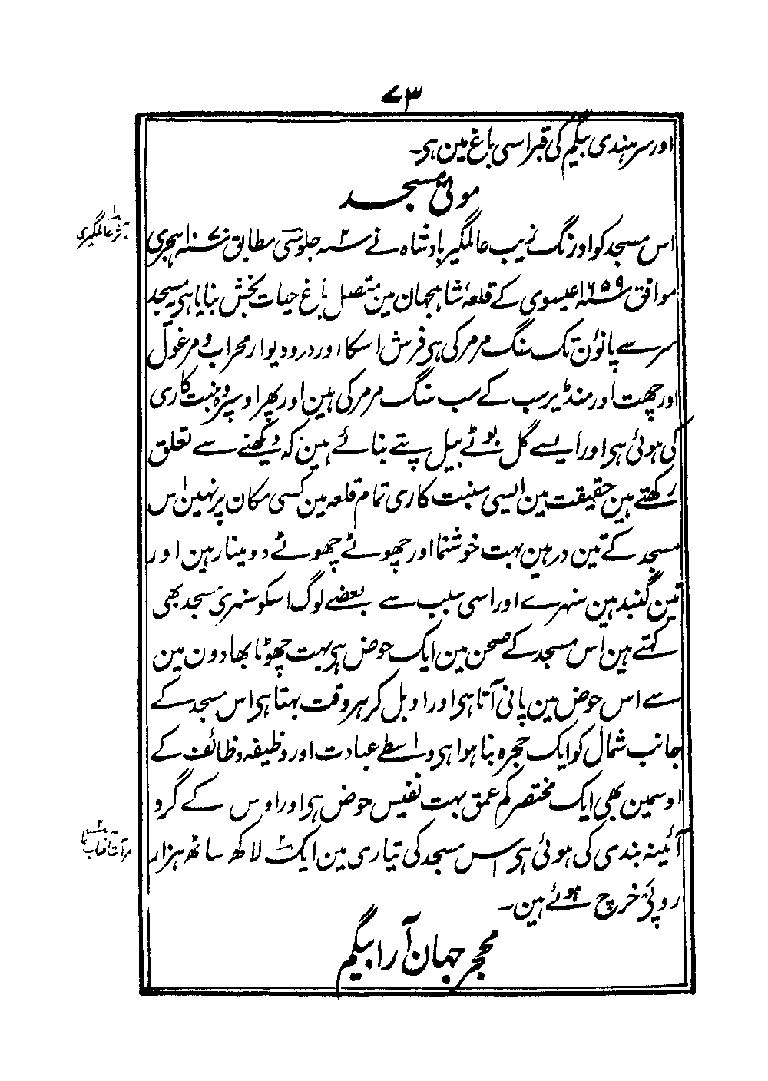 ۷۳
اور سرہندی بیگم کی قبر اسی باغ مین ہی۔
موتی مسجد
اس مسجد کو اورنگ زیب عالمگیر بادشاہ نے سنہ ۲ جلوسی مطابق سنہ ۱۰۷۰ ہجری
مآثر عالمگیری
موافق سنہ ۱۶۵۹ عیسوی کے قلعہ شاہجہان مین متصل باغ حیات بخش بنایا ہی یہ مسجد
سر سے پانؤن تک سنگ مرمر کی ہی فرش اسکا اور در و دیوار محراب و مرغول
اور چھت اور منڈیر سب کے سب سنگ مرمر کی ہین اور پھر اوسپر وہ منبت کاری
کی ہوئی ہی اور ایسے گل بوٹے بیل پتے بنائے ہین کہ دیکھنے سے تعلق
رکھتے ہین حقیقت مین ایسی منبت کاری تمام قلعہ مین کسی مکان پر نہین اس
مسجد کے تین در ہین بہت خوشنما اور چھوٹے چھوٹے دو مینار ہین اور
تین گنبد ہین سنہرے اور اسی سبب سے بعضے لوگ اسکو سنہری مسجد بھی
کہتے ہین اس مسجد کے صحن مین ایک حوض ہی بہت چھوٹا بھادون مین
سے اس حوض مین پانی آتا ہی اور اوبل کر ہر وقت بہتا ہی اس مسجد کے
جانب شمال کو ایک حجرہ بنا ہوا ہی واسطے عبادت اور وظیفہ وظائف کے
اوسمین بھی ایک مختصر کم عمق بہت نفیس حوض ہی اور اوس کے گرد
آئینہ بندی کی ہوئی ہی اس مسجد کی تیاری مین ایک لاکھ ساٹھ ہزار
مرآت آفتاب نما
روپئے خرچ ہوئے ہین۔
محجر جہان آرا بیگم